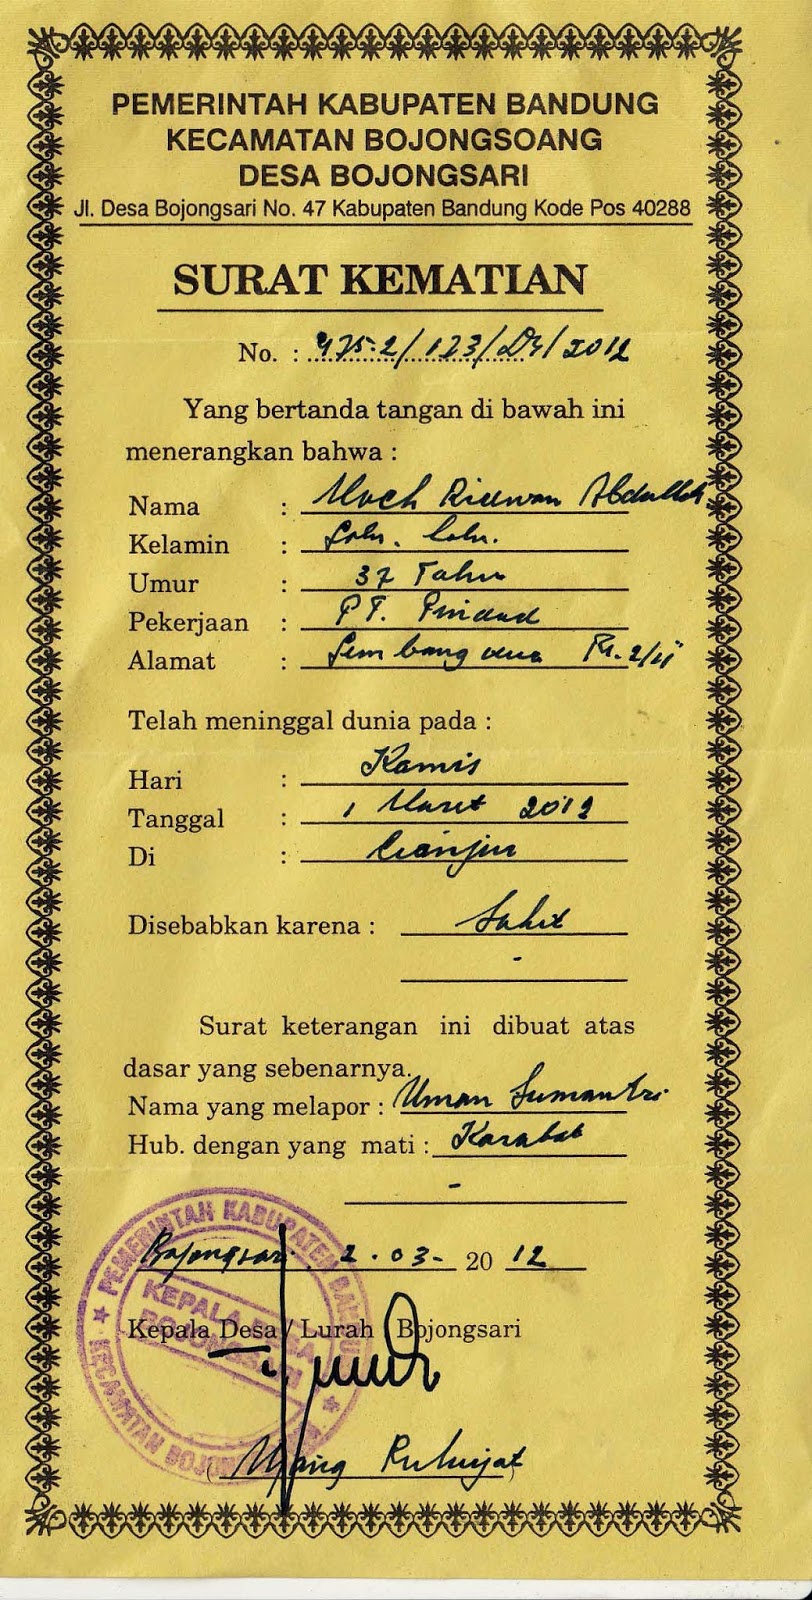 PEMERINTAH KABUPATEN BANDUNG
KECAMATAN BOJONGSOANG
DESA BOJONGSARI
Jl. Desa Bojongsari No. 47 Kabupaten Bandung Kode Pos 40288
SURAT KEMATIAN
No. : 475.2/123/Ds/2012
Yang bertanda tangan di bawah ini
menerangkan bahwa :
Nama : Moch Ridwan Abdulloh
Kelamin : Laki. laki.
Umur : 37 Tahun
Pekerjaan : PT. Pindad
Alamat : 
Telah meninggal dunia pada :
Hari : Kamis
Tanggal : 1 Maret 2012
Di : Cianjur
Disebabkan karena : Sakit
-
Surat keterangan ini dibuat atas
dasar yang sebenarnya.
Nama yang melapor : Uman Sumantri
Hub. dengan yang mati : Karabat
-
Bojongsari 2 . 03 - 20 12
Kepala Desa / Lurah Bojongsari
PEMERINTAH KABUPATEN BANDUNG
KEPALA DESA
BOJONGSARI
KECAMATAN BOJONGSOANG
( Ujang Ruhiyat )